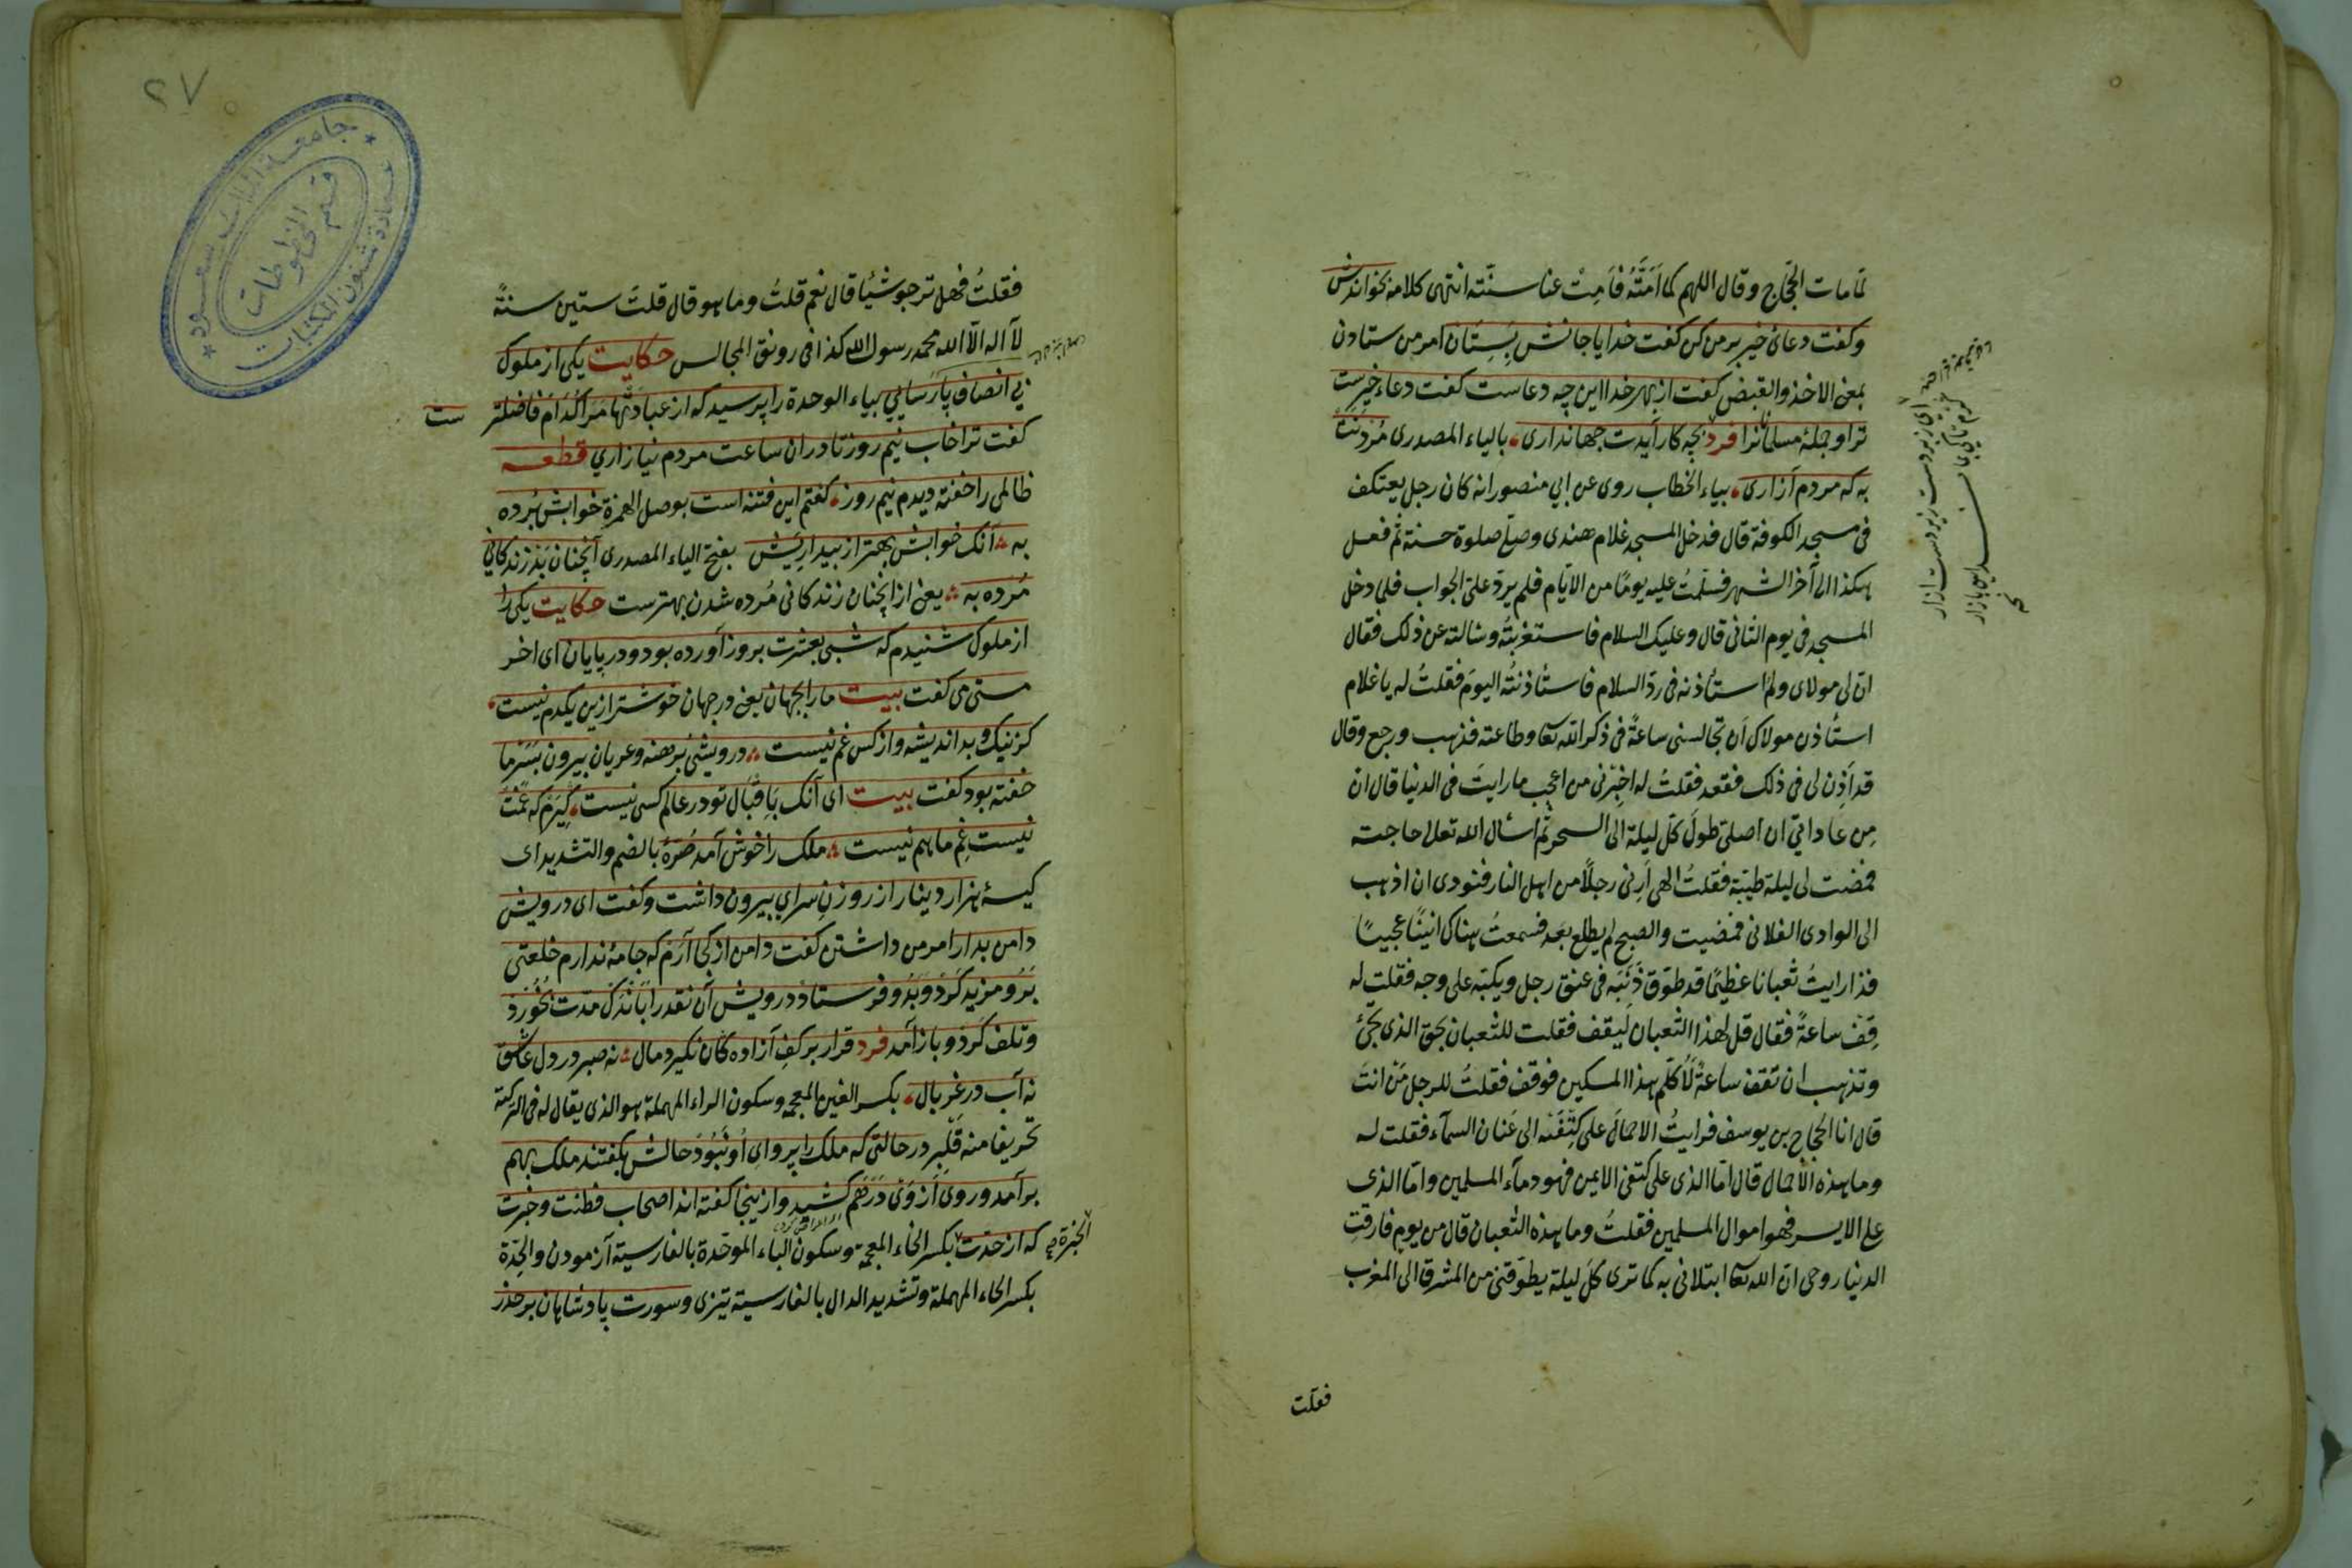 لما مات الحجاج وقال اللهم كما اَمَتَّهُ فَاَمِتْ عنا سنّته انتهى كلامه بخواندش
وكفت دعائ خير بر من كن كفت خدايا جانش بِسِتَان امر من ستادن
بمعنى الاخذ والقبض كفت از بهر خدا اين چه دعاست كفت دعاء خيرست
ترا وجملۀ مسلمانرا فرد بچه كار آيدت جهاندارى بالياء المصدرى مُردَنَتْ
به كه مردم آزارى بياء الخطاب روى عن ابي منصور انه كان رجل يعتكف
فى مسجد الكوفة قال فدخل المسجد غلام هندى وصلّى صلوة حسنة ثم فعل
هكذا الى آخر الشهر فسلّمتُ عليه يومًا من الايّام فلم يردّ علىّ الجواب فلما دخل
المسجد فى يوم الثانى قال وعليك السلام فاستغربتُه وسالته عن ذلك فقال
ان لى مولاى ولم استأذنه فى ردّ السلام فاستأذنتُه اليومَ فقلتُ له يا غلام
استأذن مولاك اَن تجالسنى ساعةً فى ذكر الله تعا وطاعته فذهب ورجع وقال
قد اَذِن لى فى ذلك فقعد فقلتُ له اخبِرْنى من اعجب ما رايتَ فى الدنيا قال ان
مِن عاداتي ان اصلى طولَ كلّ ليلة الى السحر ثم اسأل الله تعلى حاجت
فمضت لى ليلة طيّبة فقلتُ الهى اَرِنى رجلًا من اهل النار فنودى ان اذهب
الى الوادى الفلانى فمضيت والصبح لم يطلع بعد فسمعتُ هناك انينًا عجيبًا
فذا رايتُ ثعبانا عظيمًا قد طوّق ذَنَبَه فى عنق رجل ويكبّه على وجه فقلت له
قِفْ ساعةً فقال قل لهذا الثعبان ليقف فقلت للثعبان بحق الذى تجئ
وتذهب ان تقف ساعةً لاُكلّم هذا المسكين فوقف فقلتُ للرجل مَنْ انتَ
قال انا الحجاج بن يوسف فرايتُ الاحمالَ على كتفَيْه الى عَنان السمآء فقلت له
وما هذه الاحمال قال امّا الذى على كتفى الايمن فهو دمآء المسلمين وامّا الذى
على الايسر فهو اموال المسلمين فقلتُ وما هذه الثعبان قال من يوم فارقت
الدنيا روحى ان الله تعا ابتلانى به كما ترى كلَّ ليلة يطوّقنى من المشرق الى المغرب
فقلت
اى زبردست زيردست آزار
كرم تا كى بماند اين بازار
٢٧
جامعة الملك سعود
عمادة شئون المكتبات
قسم المخطوطات
فقلتُ فهل ترجو شيئا قال نعم قلتُ وما هو قال قلتَ ستين سنةً
لا اله الّا الله محمد رسول الله كذا فى رونق المجالس حكايت يكى از ملوك
بي انصاف پارسائي بياء الوحدة را پرسيد كه از عبادتها مرا كدام فاضلتر
ست
كفت ترا خاب نيم روز تا دران ساعت مردم نيازاري قطعه
ظالمى را خفته ديدم نيم روز كفتم اين فتنه است بوصل الهمزة خوابش بُرده
به آنك خوابش بهتر از بيداريَش بفتح الياء المصدرى آنچنان بَد زندكاني
مُرده به يعنى از آنچنان زندكانى مُرده شدن بهترست حكايت يكى را
از ملوك شنيدم كه شبى بعشرت بروز آورده بود ودر پايان اى اخر
مستى مى كفت بيت ما را بجهان يعنى در جهان خوشتر ازين يكدم نيست
كز نيك وبد انديشه واز كس غم نيست درويشى برهنه وعريان بيرون بسَرْما
خفته بود كفت بيت اى آنك بَاِقبَال تو در عالم كسى نيست كيرَم كه غمَت
نيست غمِ ما هم نيست ملك را خوش آمد صُرّۀ بالضم والتشديد اى
كيسۀ هزار دينار از روزنِ سراي بيرون داشت وكفت اى درويش
دامن بدار امر من داشتن كفت دامن از كجا آرَم كه جامه ندارم خلعتى
بَرُو مزيد كرد وبَدُو فرستاد درويش آن نقد را باندك مدّت بخورد
وتلف كرد وباز آمد فرد قرار بر كفِ آزاده كان نكيرد مال نه صبر در دل عاشق
نه آب در غربال بكسر الغين المعجمة وسكون الراء المهملة هو الذى يقال له فى التركية
تحريفا منه قلبر در حالتى كه ملك را پرواى اُو نَبُود حالش بكفتند ملك بهم
برآمد وروى اَز وَى دَرهَم كشيد وازينجا كفته اند اصحاب فطنت وخبرت
كه از حدّت بكسر الخاء المعجمة وسكون الباء الموحدة بالفارسية آزمودن والحِدّة
الخبرة صح
بكسر الحاء المهملة وتشديد الدال بالفارسية تيزى وسورت پادشاهان بر حذر